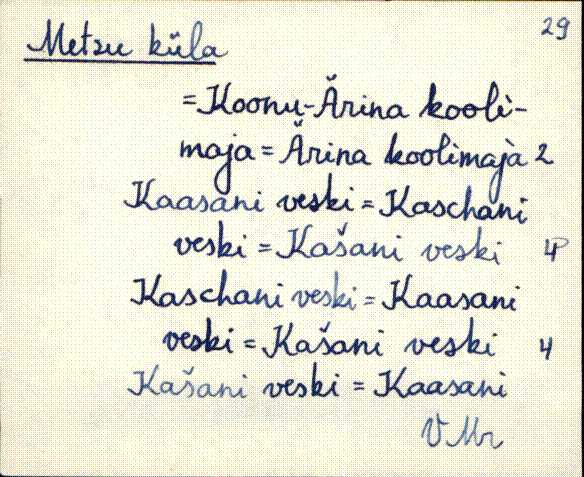 29
Metsu küla
= Koonu-Ărina kooli-
maja = Ărina koolimaja 2
Kaasani veski = Kaschani
veski = Kašani veski 4
Kaschani veski = Kaasani
veski = Kašani veski 4
Kašani veski = Kaasani
VMr